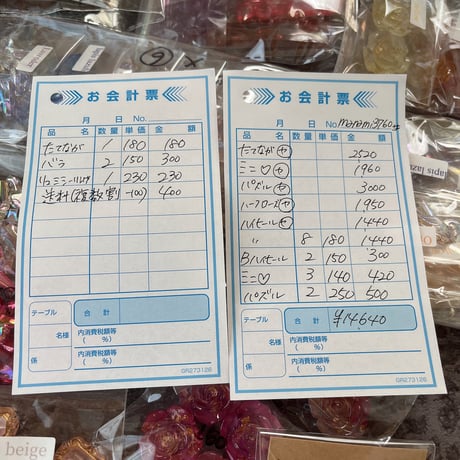 お会計票
月 日 No.
品 名 数量 単価 金 額
たてなが 1 180 180
バラ 2 150 300
1 230 230
送料(複数割 -100) 400
テーブル 合計
名様 内消費税額等
係 ( %)
内消費税額等
( %)
GR273126
お会計票
月 日 No. manami3760
品 名 数量 単価 金 額
たてなが(ヤ) 2520
ミニ♡(ヤ) 1960
パズル(ヤ) 3000
ハーフローズ(ヤ) 1950
(ヤ) 1440
〃 8 180 1440
2 150 300
ミニ♡ 3 140 420
パズル 2 250 500
テーブル 合計 ¥14640
名様 内消費税額等
係 ( %)
内消費税額等
( %)
GR273126
lapis lazu
beige